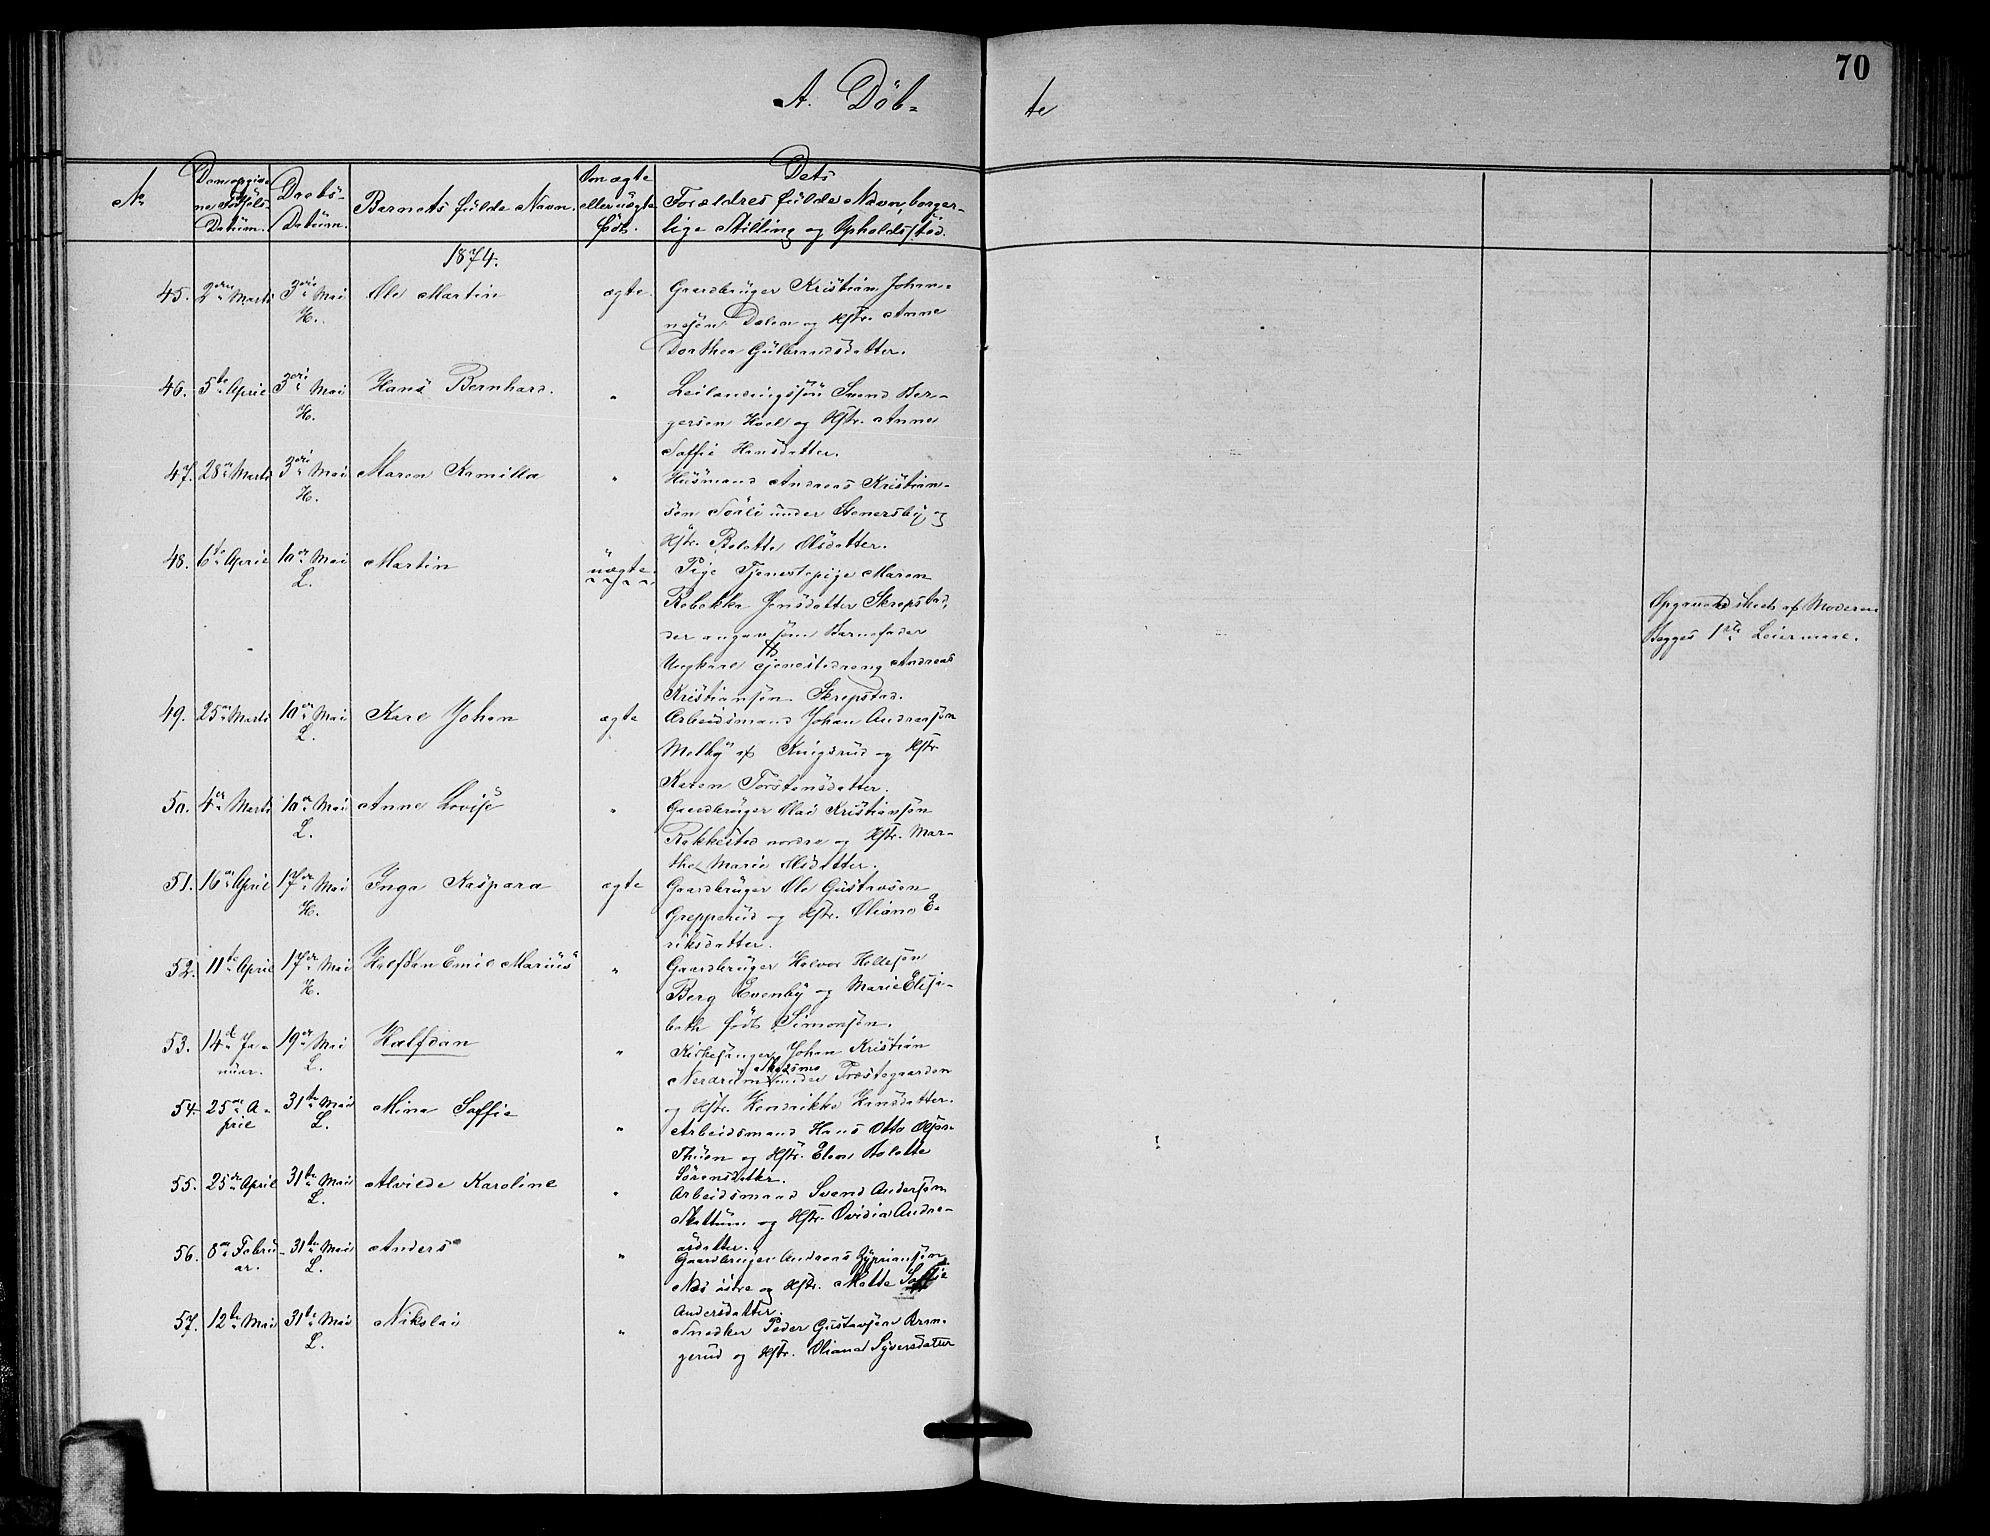 70
A. Döb-
te
No
Den opgivne Fødsels-Datum.
Daabs-Datum.
Barnets fulde Navn.
Om ægte eller uægte født.
Dets Forældres fulde Navn, borgerlige Stilling og Opholdssted.
1874.
45. 2den Marts 3die Mai H. Ole Martin ægte. Gaardbruger Kristian Johan-
nesøn Dalen og Hstr. Anne
Dorthea Gulbrandsdatter.
46. 5te April 3die Mai H. Hans Bernhard. " Leilændingssøn Svend Ber-
gersen Hoel og Hstr. Anne
Soffie Hansdatter.
47. 28de Marts 3die Mai H. Maren Kamilla " Husmand Andreas Kristian-
sen Sörli under Stenersby og
Hstr. Bolette Olsdatter.
48. 6te April 10de Mai L. Martin uægte Pige Tjenestepige Maren
Rebekka Jensdatter Skrepstad,
der angav som Barnefader
Ungkarl Tjenestedreng Andreas
Kristiansøn Skrepstad.
Opgavens skeet af Moderen
Begges 1ste Leiermaal.
49. 25de Marts 10de Mai L. Karl Johan ægte Arbeidsmand Johan Andreasøn
Melby af Kingsrud og Hstr
Karen Torstensdatter.
50. 4de Marts 10de Mai L. Anne Lovise " Gaardbruger Olai Kristiansøn
Rakkestad nordre og Hstr. Mar-
the Marie Olsdatter.
51. 16de April 17de Mai H. Inga Kaspara ægte Gaardbruger Ole Gustavsen
Grepperud og Hstr. Oliane E-
riksdatter.
52. 11te April 17de Mai H. Halfdan Emil Marius " Gaardbruger Halvor Hellesøn
Berg Evenby og Marie Elisa-
beth født Simonsøn.
53. 14de Januar. 19de Mai L. Halfdan " Kirkesanger Johan Kristian
Nerdrum under Præstegaarden
og Hstr. Hendrikke Hansdatter.
54. 25de April 31te Mai L. Mina Soffie " Arbeidsmand Hans Otto Olsøn
Thuen og Hstr. Elen Bolette
Sørensdatter.
55. 25de April 31te Mai L. Alvilde Karoline " Arbeidsmand Svend Andersøn
Stattum og Hstr. Ovidia Andre-
asdatter.
56. 8de Februar. 31te Mai L. Anders " Gaardbruger Andreas Zypriansøn
Næs østre og Hstr. Mathe Soffie
Andersdatter.
57. 12te Mai 31te Mai L. Nikolai " Snedker Peder Gustavsøn Brin-
gerud og Hstr. Oliana Syversdatter